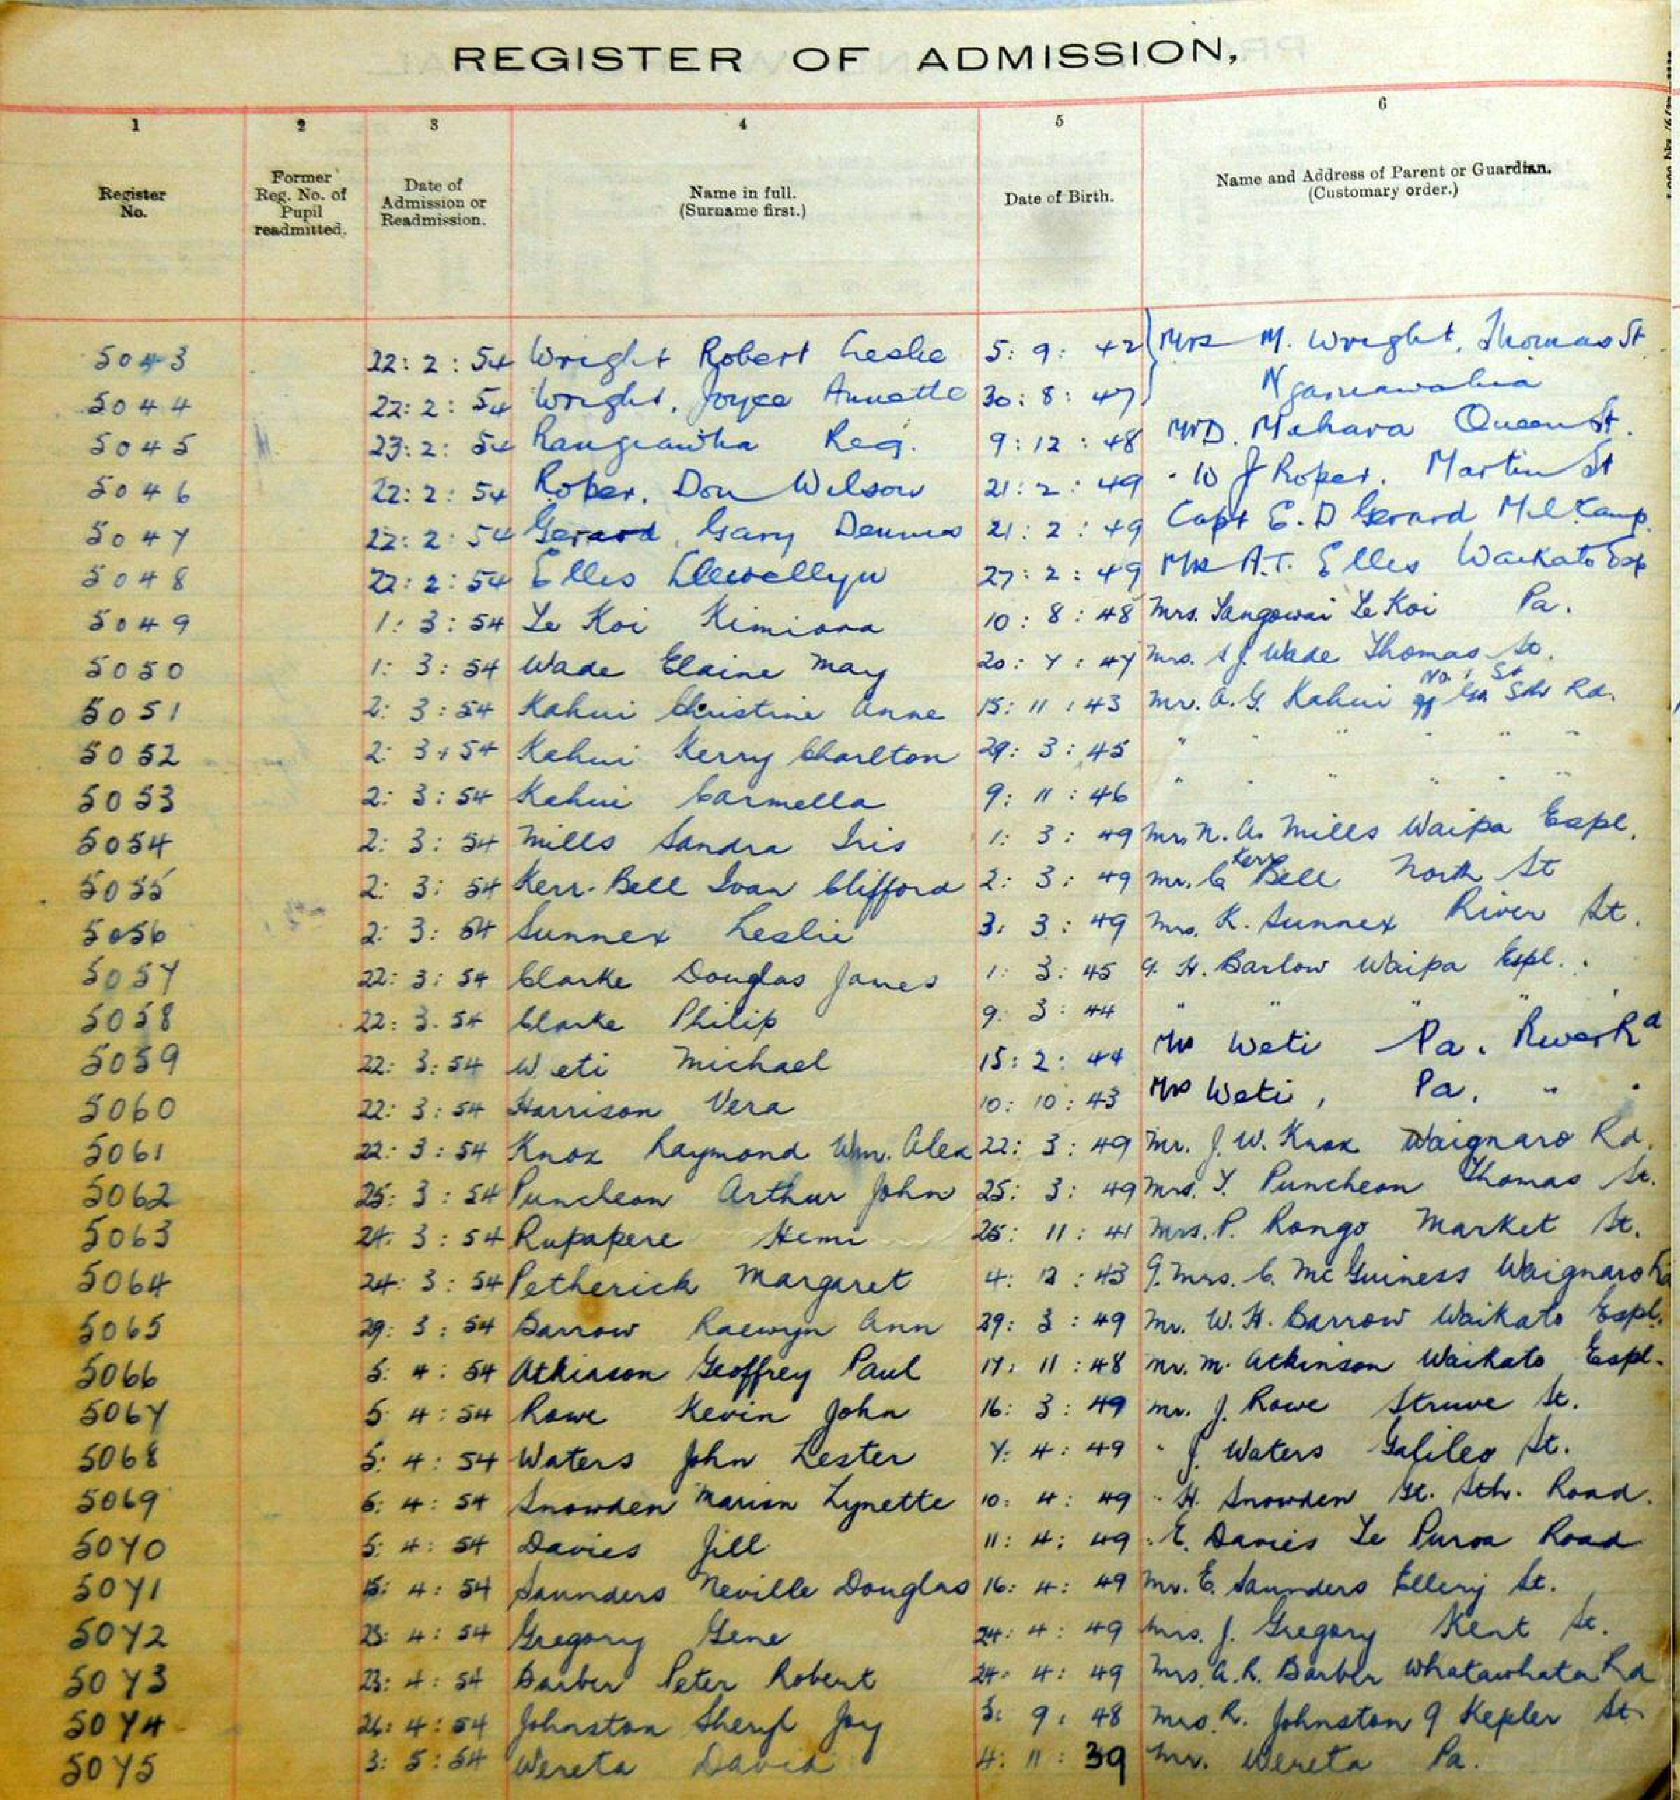 REGISTER OF ADMISSION,
1 2 3 4 5 6
Register No. Former Reg. No. of Pupil readmitted. Date of Admission or Readmission. Name in full. (Surname first.) Date of Birth. Name and Address of Parent or Guardian. (Customary order.)
5043 22:2:54 Wright Robert Leslie 5:9:42 Mrs M. Wright, Thomas St
5044 22:2:54 Wright, Joyce Annette 30:8:47 Ngaruawahia
5045 23:2:54 Reg. 9:12:48 Mr D. Mahara Queen St.
5046 22:2:54 Roper, Don Wilson 21:2:49 " W J Roper. Martin St
5047 22:2:54 Gerard, Gary Dennis 21:2:49 Capt E. D Gerard Mil Camp.
5048 22:2:54 Elles Llewellyn 27:2:49 A.T. Elles Waikato Esp
5049 1:3:54 Te Koi Kimiora 10:8:48 Mrs. Tangowai Te Koi Pa.
5050 1:3:54 Wade Elaine May 20:7:47 Mrs. S J. Wade Thomas St.
5051 2:3:54 Kahui Christine Anne 15:11:43 Mr. A. G. Kahui Rd.
5052 2:3:54 Kahui Kerry Charlton 29:3:45 " " " " " "
5053 2:3:54 Kahui Carmella 9:11:46 " " " " " "
5054 2:3:54 Mills Sandra Iris 1:3:49 Mr. N. A. Mills Waipa Espl.
5055 2:3:54 Kerr-Bell Ivan Clifford 2:3:49 Mr. C Kerr Bell North St
5056 2:3:54 Sunnex Leslie 3:3:49 Mrs. K. Sunnex River St.
5057 22:3:54 Clarke Douglas James 1:3:45 G. H. Barlow Waipa Espl.
5058 22:3:54 Clarke Philip 9:3:44 " " " "
5059 22:3:54 Weti Michael 15:2:44 Mrs Weti Pa. River Rd
5060 22:3:54 Harrison Vera 10:10:43 Mrs Weti, Pa. " "
5061 22:3:54 Knox Raymond Wm. Alex 22:3:49 Mr. J. W. Knox Waignaro Rd.
5062 25:3:54 Puncheon Arthur John 25:3:49 Mrs. T. Puncheon Thomas St.
5063 24:3:54 Rupapere Hemi 25:11:41 Mrs. P. Rongo Market St.
5064 24:3:54 Petherick Margaret 4:12:43 G. Mrs. C. McGuiness Waignaro Rd
5065 29:3:54 Barrow Raewyn Ann 29:3:49 Mr. W. H. Barrow Waikato Espl.
5066 5:4:54 Atkinson Geoffrey Paul 17:11:48 Mr. M. Atkinson Waikato Espl.
5067 5:4:54 Rowe Kevin John 16:3:49 Mr. J. Rowe Struve St.
5068 5:4:54 Waters John Lester 7:4:49 " J. Waters Galileo St.
5069 6:4:54 Snowden Marion Lynette 10:4:49 " H. Snowden Gt. Sth. Road.
5070 5:4:54 Davies Jill 11:4:49 " E. Davies Te Puroa Road
5071 15:4:54 Saunders Neville Douglas 16:4:49 Mr. E. Saunders Ellery St.
5072 23:4:54 Gregory Gene 24:4:49 Mrs. J. Gregory Kent St.
5073 23:4:54 Barber Peter Robert 24:4:49 Mrs. A. R. Barber Whatawhata Rd
5074 26:4:54 Johnston Sheryl Joy 3:9:48 Mrs. R. Johnston 9 Kepler St.
5075 3:5:54 Wereta David 4:11:39 Mr. Wereta Pa.